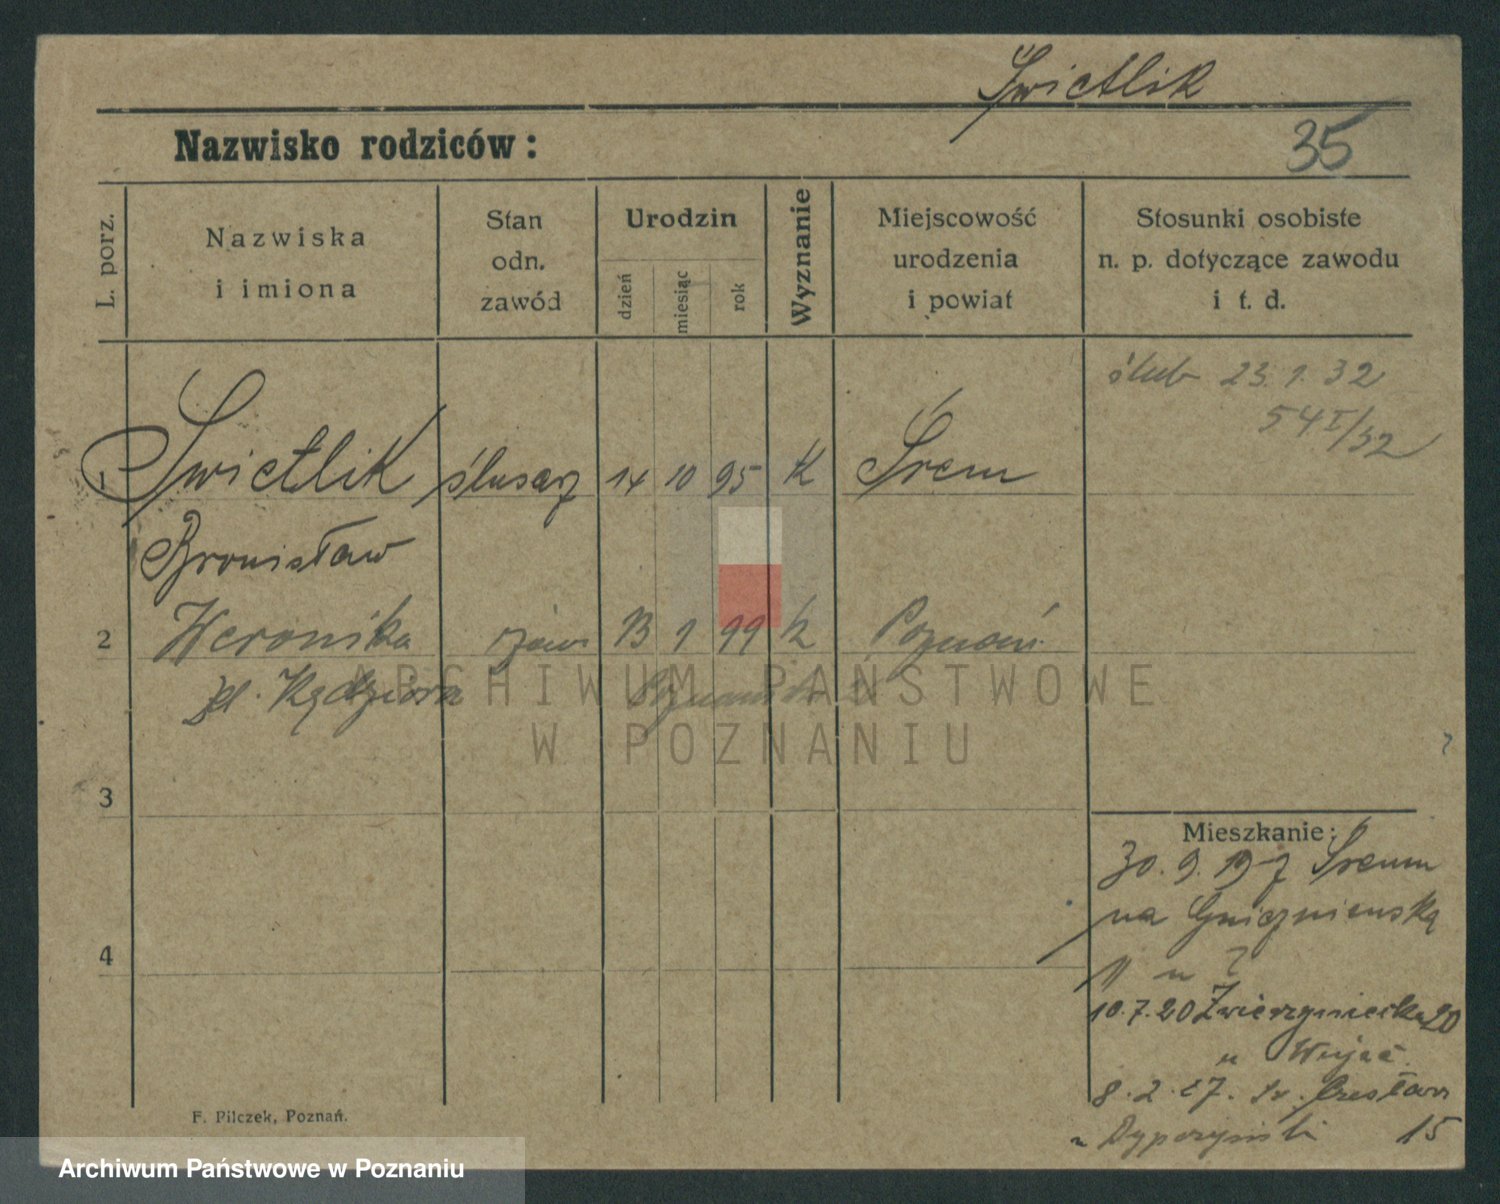 Świetlik
Nazwisko rodziców:
35
L. porz.
Nazwiska
i imiona
Stan
odn.
zawód
Urodzin
dzień
miesiąc
rok
Wyznanie
Miejscowość
urodzenia
i powiat
Stosunki osobiste
n. p. dotyczące zawodu
i t. d.
ślub 23.1.32
54 I/32
1 Świetlik ślusarz 14 10 95 K Śrem
Bronisław
2 Weronika 13 1 99 k Poznań
Kędziora
ARCHIWUM PAŃSTWOWE
W POZNANIU
3
Mieszkanie:
30.9.19 z Śremu
na Gnieźnieńską
11 u
4
10.7.20 Zwierzyniecka 20
u
8.2.27. Czesława
u 15
F. Pilczek, Poznań.
Archiwum Państwowe w Poznaniu